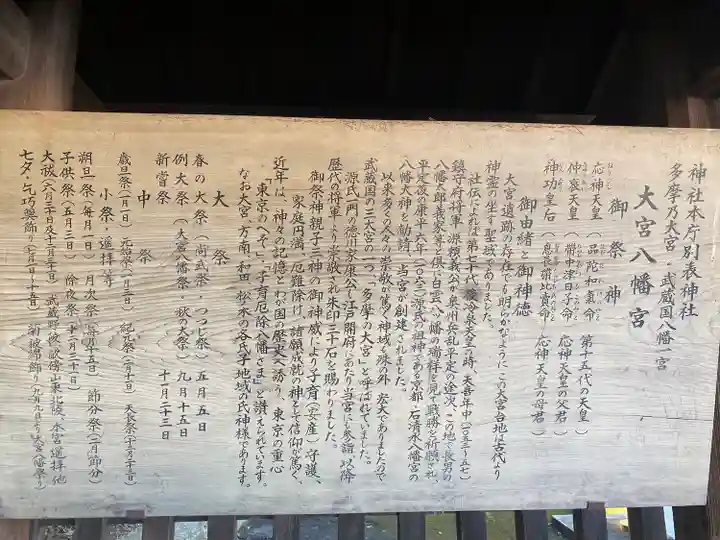 神社本庁別表神社
多摩乃大宮・武蔵国八幡一宮
大宮八幡宮
御祭神
応神天皇（品陀和氣命 第十五代の天皇）
仲哀天皇（帯中津日子命 応神天皇の父君）
神功皇后（息長帯比賣命 応神天皇の母君）
御由緒と御神徳
大宮遺跡の存在でも明らかなようにこの大宮台地は古代より
神霊の坐す聖域でありました。
社伝によれば第七十代後冷泉天皇の時、天喜年中（一〇五三〜五七）
鎮守府将軍源頼義公が奥州兵乱平定の途次、この地で長男の
八幡太郎義家等と倶に白雲八幡の瑞祥を見て戦勝を祈願され
平定後の康平六年（一〇六三）源氏の祖神である京都・石清水八幡宮の
八幡大神を勧請し、当宮が創建されました。
以来多くの人々の崇敬が篤く神域も殊の外宏大でありましたので
武蔵国の三大宮の一つ、「多摩の大宮」と呼ばれていました。
源氏一門の徳川家康公も江戸開府にあたり当宮にも参詣、以降
歴代の将軍より崇敬され朱印三十石を賜わりました。
御祭神親子三神の御神威により子育（安産）守護、
家庭円満、厄難除け、諸願成就の神として信仰が篤く、
近年は、「神々の記憶とわが国の歴史へ誘う、東京の重心
「東京のへそ」、「子育厄除八幡さま」と讃えられています。
なお大宮、方南、和田、松木の各氏子地域の氏神様であります。
大祭
春の大祭（尚武祭 つつじ祭）五月五日
例大祭（大宮八幡祭・秋の大祭）九月十五日
新嘗祭 十一月二十三日
中祭
歳旦祭（一月一日） 元始祭（一月三日） 紀元祭（二月十一日） 天長祭（十二月二十三日）
小祭・遥拝等
朔旦祭（毎月一日） 月次祭（毎月十五日） 節分祭（二月節分）
子供祭（五月三日） 除夜祭（十二月三十一日）
大祓（六月三十日及十二月三十一日） 武蔵野陵、畝傍山東北陵、本宮遥拝他
七夕・乞巧奠飾り（七月一日〜十五日） 菊被綿飾り（九月九日より大宮八幡祭）